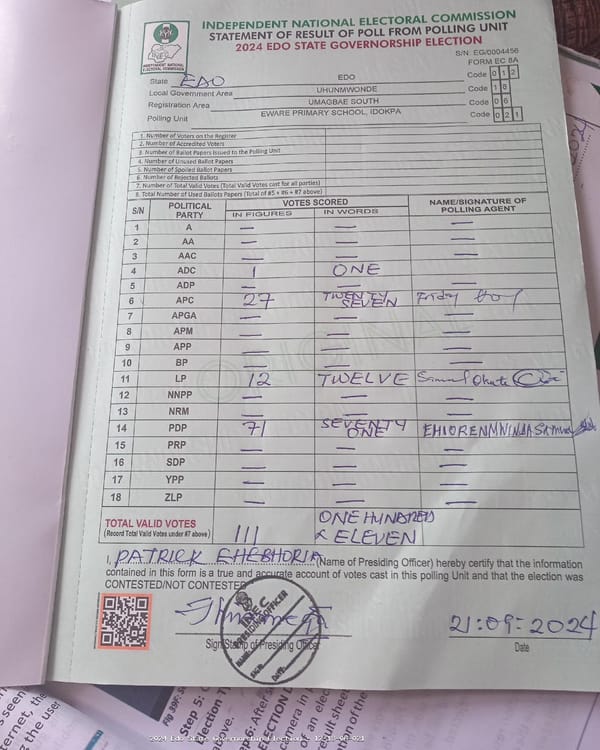 INDEPENDENT NATIONAL ELECTORAL COMMISSION
STATEMENT OF RESULT OF POLL FROM POLLING UNIT
2024 EDO STATE GOVERNORSHIP ELECTION
S/N: EG/0004456
FORM EC 8A
INEC
INDEPENDENT NATIONAL ELECTORAL COMMISSION
State EDO EDO Code 0 1 2
Local Government Area UHUNMWONDE Code 1 8
Registration Area UMAGBAE SOUTH Code 0 6
Polling Unit EWARE PRIMARY SCHOOL, IDOKPA Code 0 2 1
1. Number of Voters on the Register
2. Number of Accredited Voters
3. Number of Ballot Papers Issued to the Polling Unit
4. Number of Unused Ballot Papers
5. Number of Spoiled Ballot Papers
6. Number of Rejected Ballots
7. Number of Total Valid Votes (Total Valid Votes cast for all parties)
8. Total Number of Used Ballots Papers (Total of #5 + #6 + #7 above)
S/N POLITICAL PARTY VOTES SCORED NAME/SIGNATURE OF POLLING AGENT
IN FIGURES IN WORDS
1 A — — —
2 AA — — —
3 AAC — — —
4 ADC 1 ONE
5 ADP — — —
6 APC 27 TWENTY SEVEN Friday
7 APGA — — —
8 APM — — —
9 APP — — —
10 BP — — —
11 LP 12 TWELVE
12 NNPP — — —
13 NRM — — —
14 PDP 71 SEVENTY ONE
15 PRP — — —
16 SDP — — —
17 YPP — — —
18 ZLP — — —
ORIGINAL
TOTAL VALID VOTES
(Record Total Valid Votes under #7 above) 111 ONE HUNDRED & ELEVEN
I, PATRICK EHEBHORIA (Name of Presiding Officer) hereby certify that the information
contained in this form is a true and accurate account of votes cast in this polling Unit and that the election was
CONTESTED/NOT CONTESTED
INEC
PRESIDING OFFICER
Sign/Stamp of Presiding Officer
21-09-2024
Date
2024 Edo State Governorship Election - 12-18-06-021